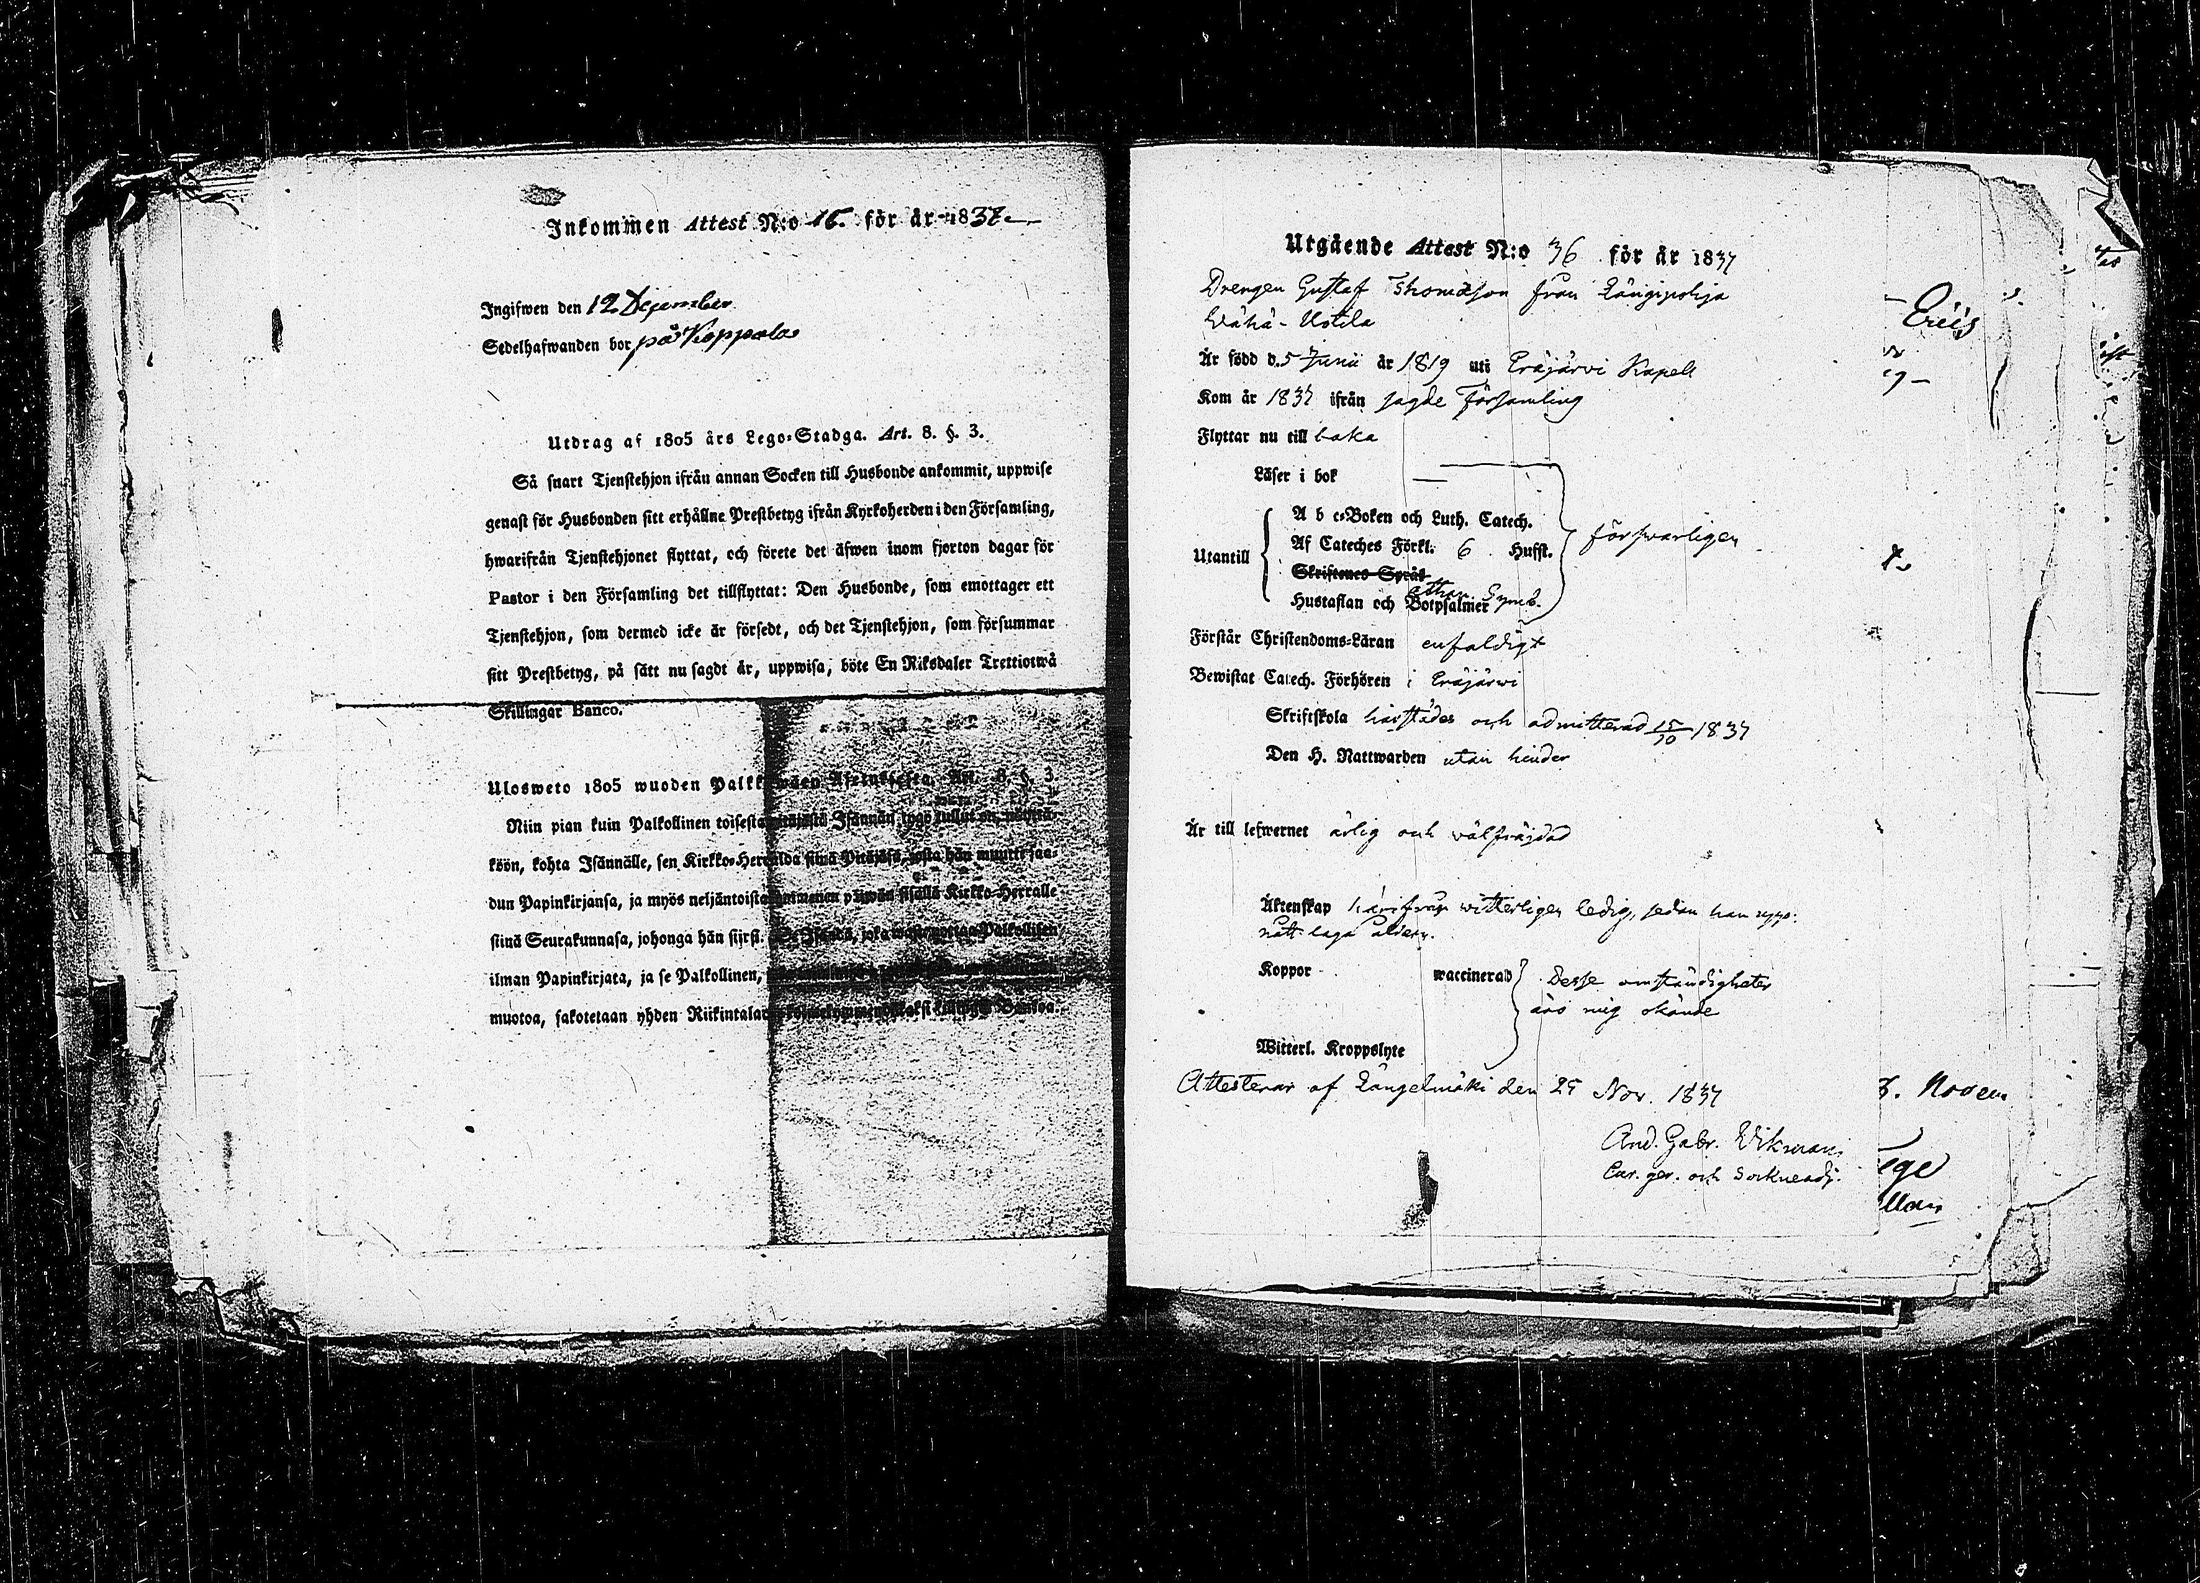 Inkommen Attest N:o 16. för år 1837
Ingifwen den 12 December
Sedelhafwanden bor på Koppala
Utdrag af 1805 års Lego-Stadga. Art. 8. §. 3.
Så snart Tjenstehjon ifrån annan Socken till Husbonde ankommit, uppwise
genast för Husbonden sitt erhållne Prestbetyg ifrån Kyrkoherden i den Församling,
hwarifrån Tjenstehjonet flyttat, och förete det äfwen inom fjorton dagar för
Pastor i den Församling det tillflyttat: Den Husbonde, som emottager ett
Tjenstehjon, som dermed icke är försedt, och det Tjenstehjon, som försummar
sitt Prestbetyg, på sätt nu sagdt är, uppwisa, böte En Riksdaler Trettiotwå
Skillingar Banco.
Ulosweto 1805 wuoden Art. 8. §. 3.
Niin pian kuin Palkollinen toisesta Isännän tygö tullut on,
köön, kohta Isännälle, sen Kirkko-Herralda siinä Pitäjäsä, josta hän muutti saa-
dun Papinkirjansa, ja myös neljäntoista päiwän sisällä Kirkko-Herralle
siinä Seurakunnasa, johonga hän siirsi. Se Isändä, joka Palkollisen
ilman Papinkirjata, ja se Palkollinen,
muotoa, sakotetaan yhden Riikintalarin
Utgående Attest N:o 36 för år 1837
Drengen Gustaf Thomasson från Längipohja
Wähä-Uotila
Är född d. 5 Junii år 1819 uti Eräjärvi Kapell
Kom år 1837 ifrån sagde Församling
Flyttar nu till baka
Läser i bok
A b c-Boken och Luth. Catech.
Utantill Af Cateches Förkl. 6 Hufst. försvarligen
Skriftenes Språk
Athan. Symb.
Hustaflan och Botpsalmer
Förstår Christendoms-Läran enfaldigt
Bewistat Catech. Förhören i Eräjärwi
Skriftskola härstädes och admitterad 15/10 1837
Den H. Nattwarden utan hinder
Är till lefwernet ärlig och välfräjdad
Äktenskap härifrån witterligen ledig, sedan han upp-
nått laga åldern.
Koppor waccinerad Desse omständigheter
äro mig okände
Witterl. Kroppslyte
Attesterar af Längelmäki den 25 Nov. 1837
And. Gabr. Wikman
Cur. ger. och Sockneadj.